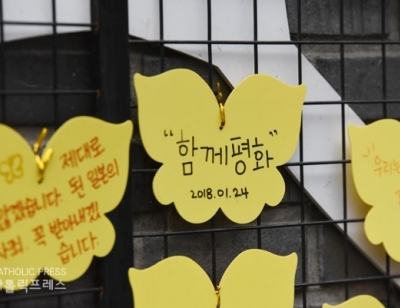 "함께평화"
2018.01.24
제대로
않겠습니다. 된 일본의
사죄. 꼭 받아내겠
습니다.
우리는
CATHOLIC PRESS
가톨릭프레스